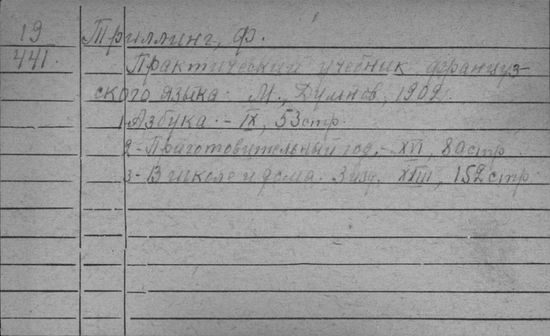 19
441.
Триллинг, Ф.
Практический учебник француз-
ского языка. М., Думнов, 1902.
1-Азбука. - IX, 53 стр.
2-Приготовительный год. - XVI, 80 стр.
3-В школе и дома. 3 изд. XVIII, 152 стр.